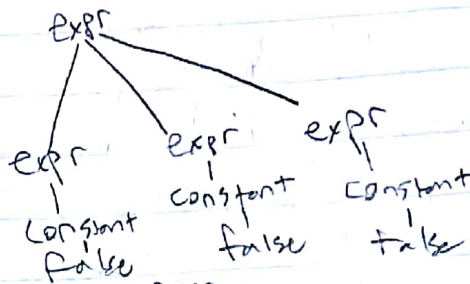 expr
expr expr expr
constant constant constant
false false false